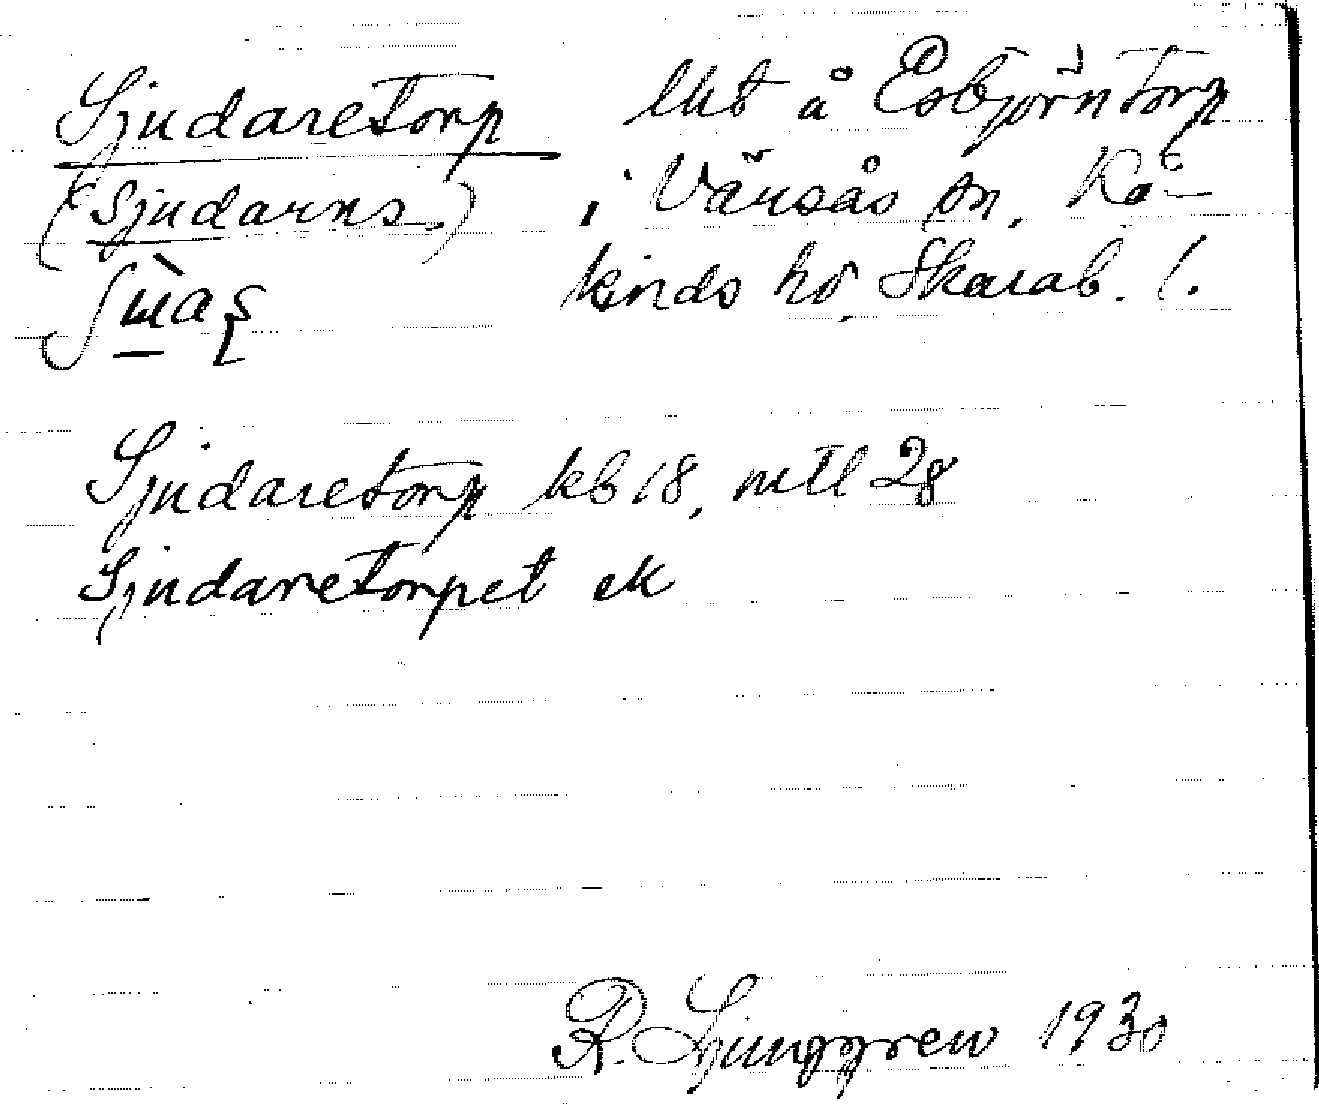 Sjudaretorp lht å Esbjörntorp
(Sjudarns) i Värsås sn, Kå-
kinds hd, Skarab. l.
Sjudaretorp kb 18, mtl 28
Sjudaretorpet ek
R. Ljunggren 1930